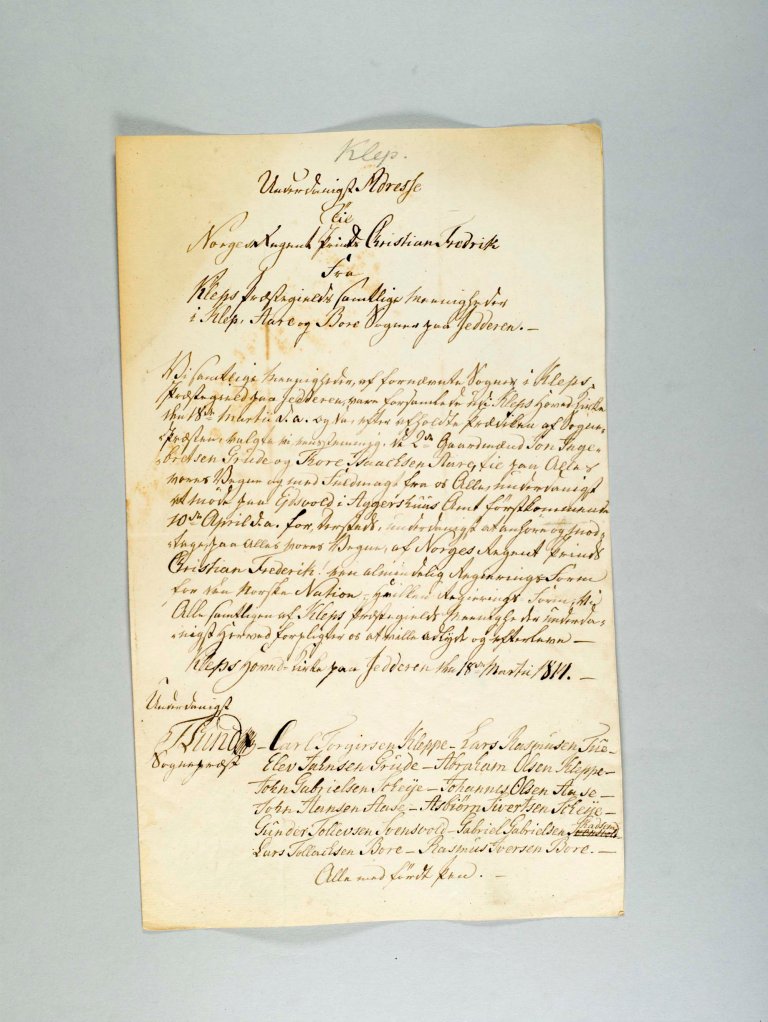 Klep.
Underdanigst Adresse
Til
Norges Regent Prinds Christian Fredrik
Fra
Kleps Præstegields samtlige Meenigheder
i Klep, Aare og Bore Sogner paa Jedderen. —
Vi samtlige Meenigheder, af fornævnte Sogner i Kleps
Præstegield paa Jedderen, vare forsamlede udi Kleps Hoved Kirke
den 18de Martii d. a. og da, efter afholdte Prædiken af Sogne-
Præsten, valgte vi eenstemmig, de 2de Gaardmænd Jon Inge-
bretsen Grude og Thore Isaachsen Aare, til paa Alles
vores Vegne og med Fuldmagt fra os Alle, underdanigst
at møde paa Eidsvold i Aggershuus Amt førstkommende
10de April d. a. for, dersteds, underdanigst at anhøre og mod-
tage paa Alles vores Vegne, af Norges Regent Prinds
Christian Frederik! den almindelig Regierings Form
for den Norske Nation; hvilken Regierings Form, vi
Alle samtligen af Kleps Præstegields Meenigheder underda-
nigst herved forpligter os at ville adlyde og efterleve —
Kleps Hoved-Kirke paa Jedderen den 18de Martii 1814. —
Underdanigst
Lund
Sognepræst
Carl Torgirsen Kleppe — Lars Rasmusen Tue —
Elev Johnsen Grude — Abraham Olsen Kleppe —
John Gabrielsen Skeije — Johannes Olsen Aase —
John Hansen Aase — Asbiørn Sivertsen Skeije —
Gunder Tollevsen Svensvold — Gabriel Gabrielsen
Lars Tollachsen Bore — Rasmus Iversen Bore. —
Alle med ført Pen. —